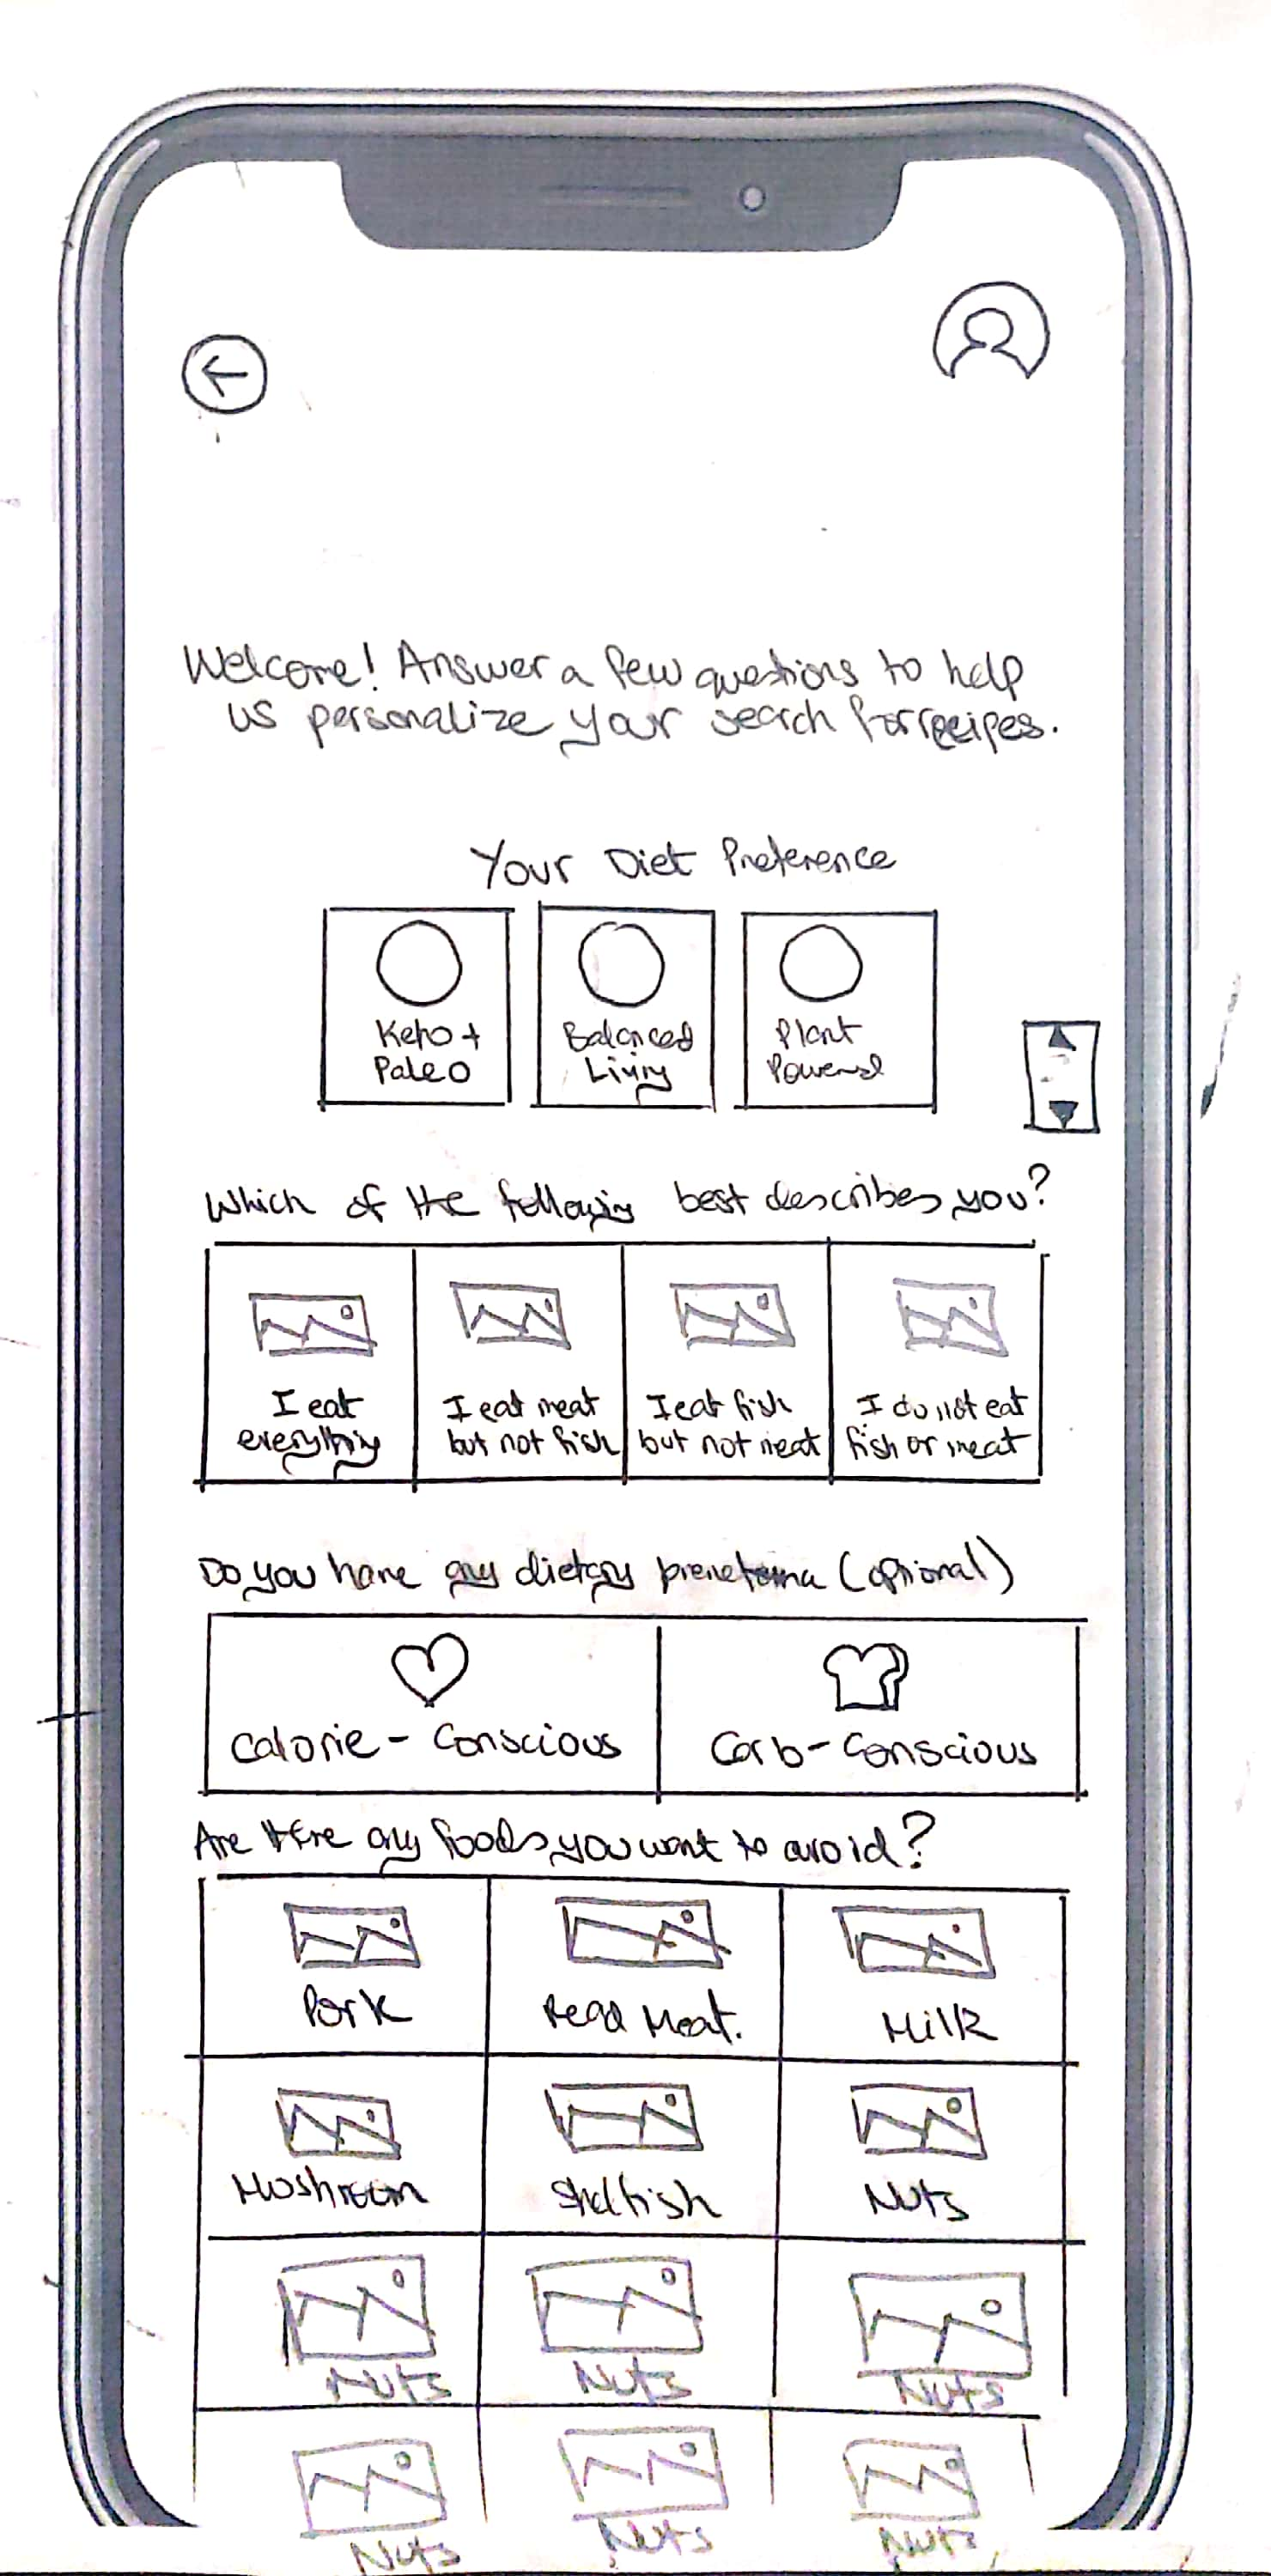 Welcome! Answer a few questions to help
us personalize your search for recipes.
Your Diet Preference
Keto +
Paleo
Balanced
Living
Plant
Powered
Which of the following best describes you?
I eat
everything
I eat meat
but not fish
I eat fish
but not meat
I do not eat
fish or meat
Do you have any dietary (optional)
Calorie - Conscious
Carb - Conscious
Are there any foods you want to avoid?
Pork
Read Meat.
Milk
Mushroom
Shellfish
Nuts
Nuts
Nuts
Nuts
Nuts
Nuts
Nuts